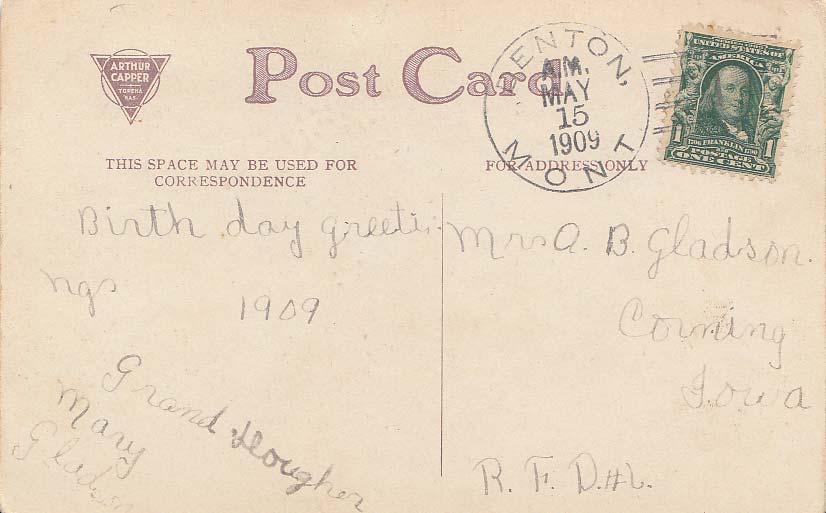 ARTHUR
CAPPER
TOPEKA
KAS.
Post Card
ENTON,
A.M.
MAY
15
1909
MONT
UNITED STATES OF
AMERICA
1706 FRANKLIN 1790
POSTAGE
1 ONE CENT 1
THIS SPACE MAY BE USED FOR
CORRESPONDENCE
FOR ADDRESS ONLY
Birth day greeti
ngs
1909
Grand dougher
Mary
Gladson
Mrs A. B. Gladson.
Corning
Iowa
R. F. D.